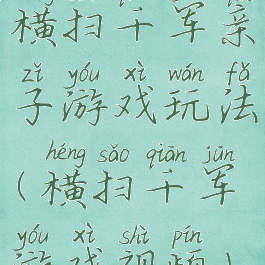 横扫千军亲
zǐ yóu xì wán fǎ
子游戏玩法
héng sǎo qiān jūn
(横扫千军
yóu xì shì pín
游戏视频)